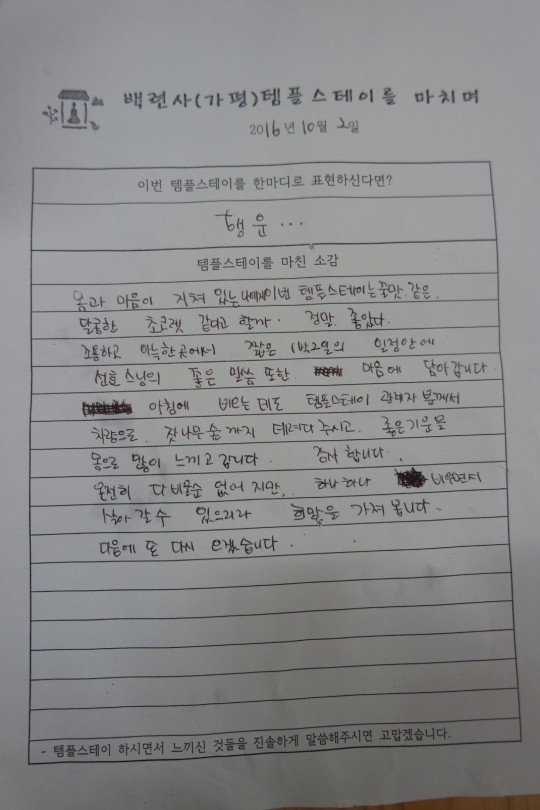 백련사(가평)템플스테이를 마치며
2016년 10월 2일
이번 템플스테이를 한마디로 표현하신다면?
행운...
템플스테이를 마친 소감
몸과 마음이 지쳐 있는 나에게 이번 템플스테이는 꿀맛.같은.
달콤한 초코렛 같다고 할까. 정말. 좋았다.
조용하고 아늑한곳에서 짧은 1박2일의 일정안에
선효스님의 좋은 말씀 또한. 마음에 담아갑니다.
아침에 비오는데도 템플스테이 관계자 분께서
차량으로. 잣나무숲까지 데려다 주시고. 좋은기운을
몸으로 많이 느끼고 갑니다. 감사 합니다.
온전히 다 비울순 없어지만, 하나하나 비우면서
살아 갈 수 있으리라 희망을 가져 봅니다..
다음에 또 다시 오겠습니다.
- 템플스테이 하시면서 느끼신 것들을 진솔하게 말씀해주시면 고맙겠습니다.